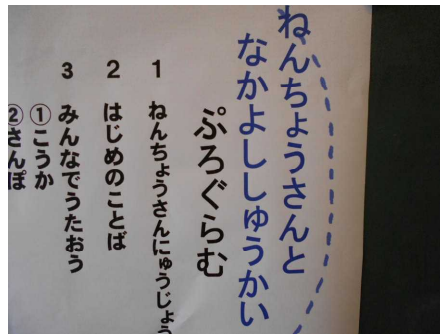 ねんちょうさんと
なかよししゅうかい
ぷろぐらむ
1 ねんちょうさんにゅうじょう
2 はじめのことば
3 みんなでうたおう
①こうか
②さんぽ